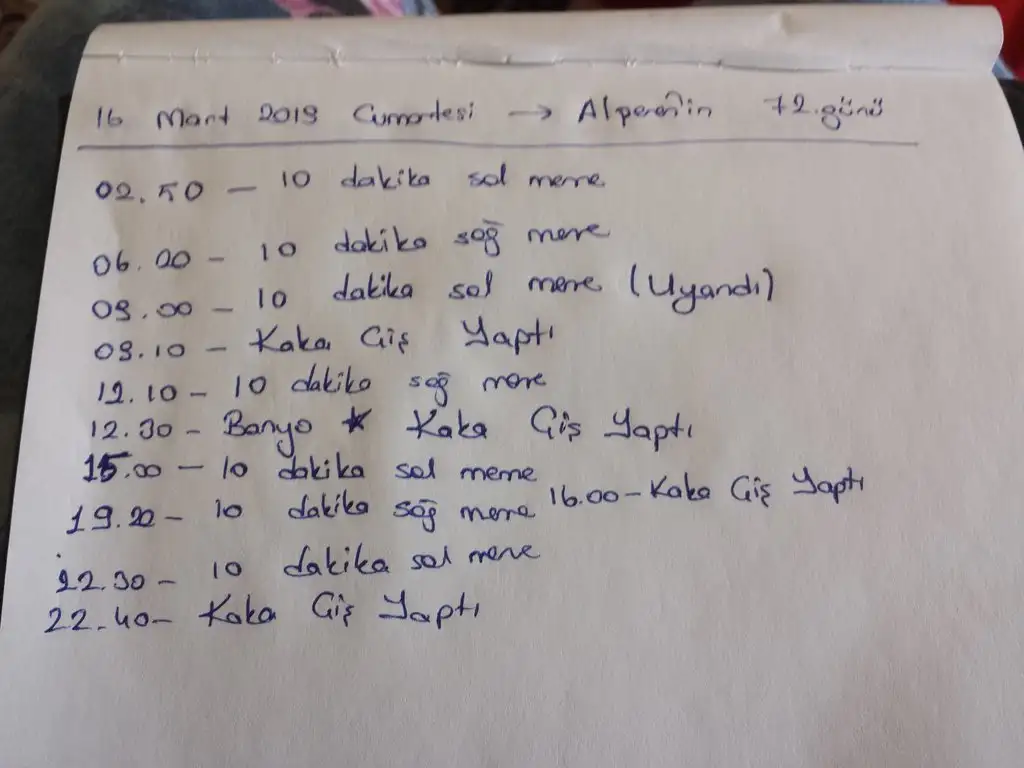 16 Mart 2019 Cumartesi → Alperen'in 72.günü
02.50 - 10 dakika sol meme
06.00 - 10 dakika sağ meme
09.00 - 10 dakika sol meme (Uyandı)
09.10 - Kaka Çiş Yaptı
12.10 - 10 dakika sağ meme
12.30 - Banyo * Kaka Çiş Yaptı
15.00 - 10 dakika sol meme
16.00 - Kaka Çiş Yaptı
19.20 - 10 dakika sağ meme
22.30 - 10 dakika sol meme
22.40 - Kaka Çiş Yaptı